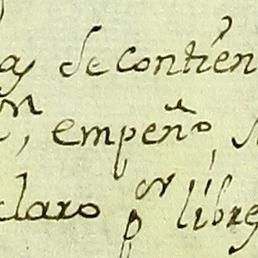 as se contien
n, empeño, s
claro por libre